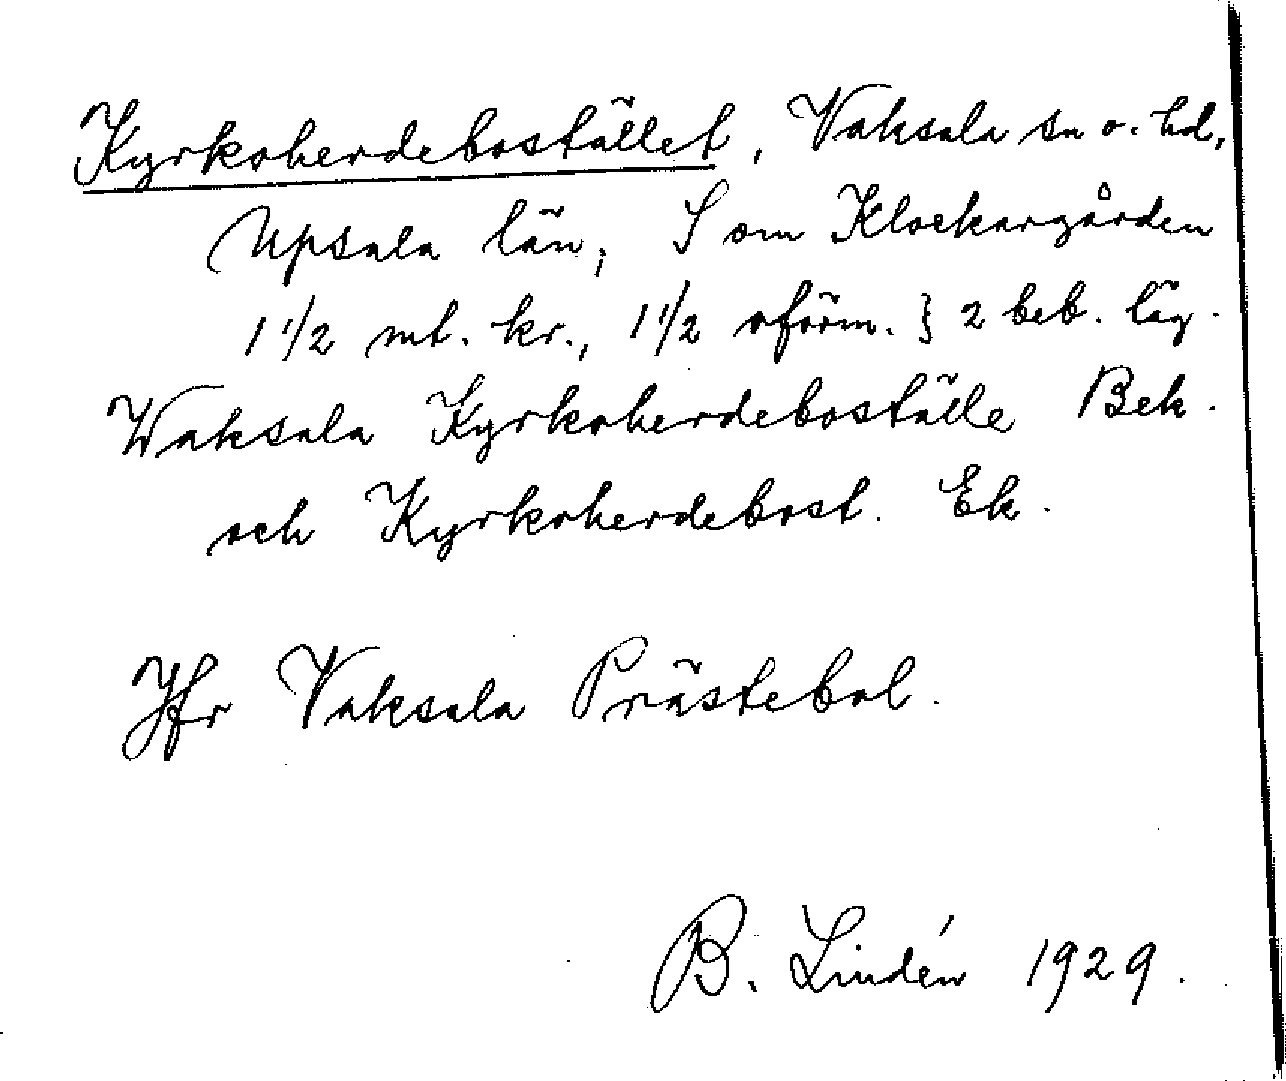 Kyrkoherdebostället, Vaksala sn o. hd,
Upsala län, S om Klockargården
1 1/2 mt. kr., 1 1/2 oförm. } 2 beb. läg.
Waksala Kyrkoherdeboställe Bek.
och Kyrkoherdebost. Ek.
Jfr Vaksala Prästebol.
B. Lindén 1929.